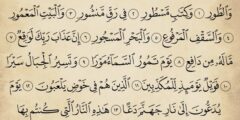 وَالطُّورِ ١ وَكِتَٰبٍ مَّسْطُورٍ ٢ فِي رَقٍّ مَّنشُورٍ ٣ وَالْبَيْتِ الْمَعْمُورِ
٤ وَالسَّقْفِ الْمَرْفُوعِ ٥ وَالْبَحْرِ الْمَسْجُورِ ٦ إِنَّ عَذَابَ رَبِّكَ لَوَاقِعٌ ٧
مَّالَهُ مِن دَافِعٍ ٨ يَوْمَ تَمُورُ السَّمَاءُ مَوْرًا ٩ وَتَسِيرُ الْجِبَالُ سَيْرًا
١٠ فَوَيْلٌ يَوْمَئِذٍ لِّلْمُكَذِّبِينَ ١١ الَّذِينَ هُمْ فِي خَوْضٍ يَلْعَبُونَ ١٢ يَوْمَ
يُدَعُّونَ إِلَىٰ نَارِ جَهَنَّمَ دَعًّا ١٣ هَٰذِهِ النَّارُ الَّتِي كُنتُم بِهَا